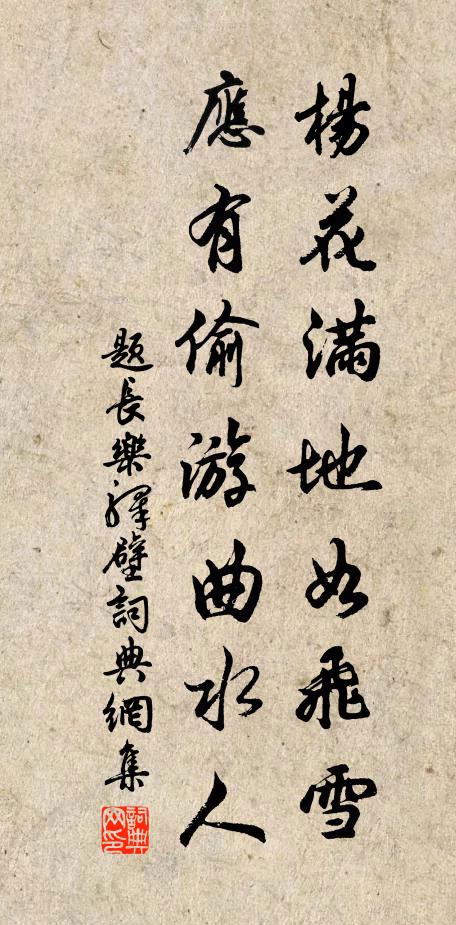 楊花滿地如飛雪
應有偷游曲水人
題長樂驛壁詞典網集
詞典网印